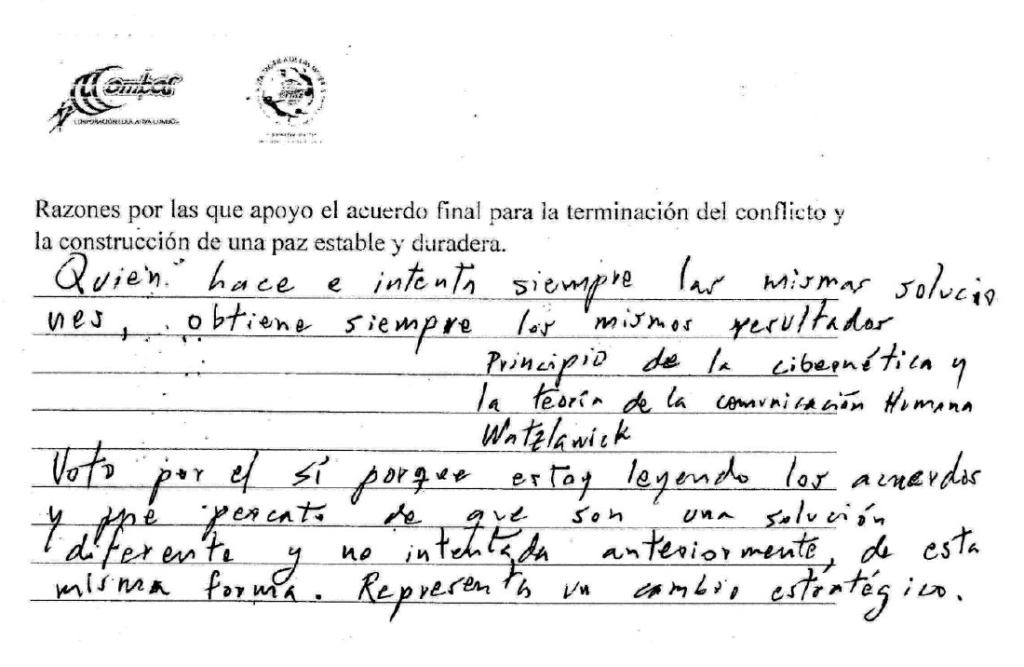 Combos
Razones por las que apoyo el acuerdo final para la terminación del conflicto y
la construcción de una paz estable y duradera.
Quien hace e intenta siempre las mismas solucio
nes, obtiene siempre los mismos resultados
Principio de la cibernética y
la teoría de la comunicación Humana
Watzlawick
Voto por el sí porque estoy leyendo los acuerdos
y me percato de que son una solución
diferente y no intentada anteriormente, de esta
misma forma. Representa un cambio estratégico.